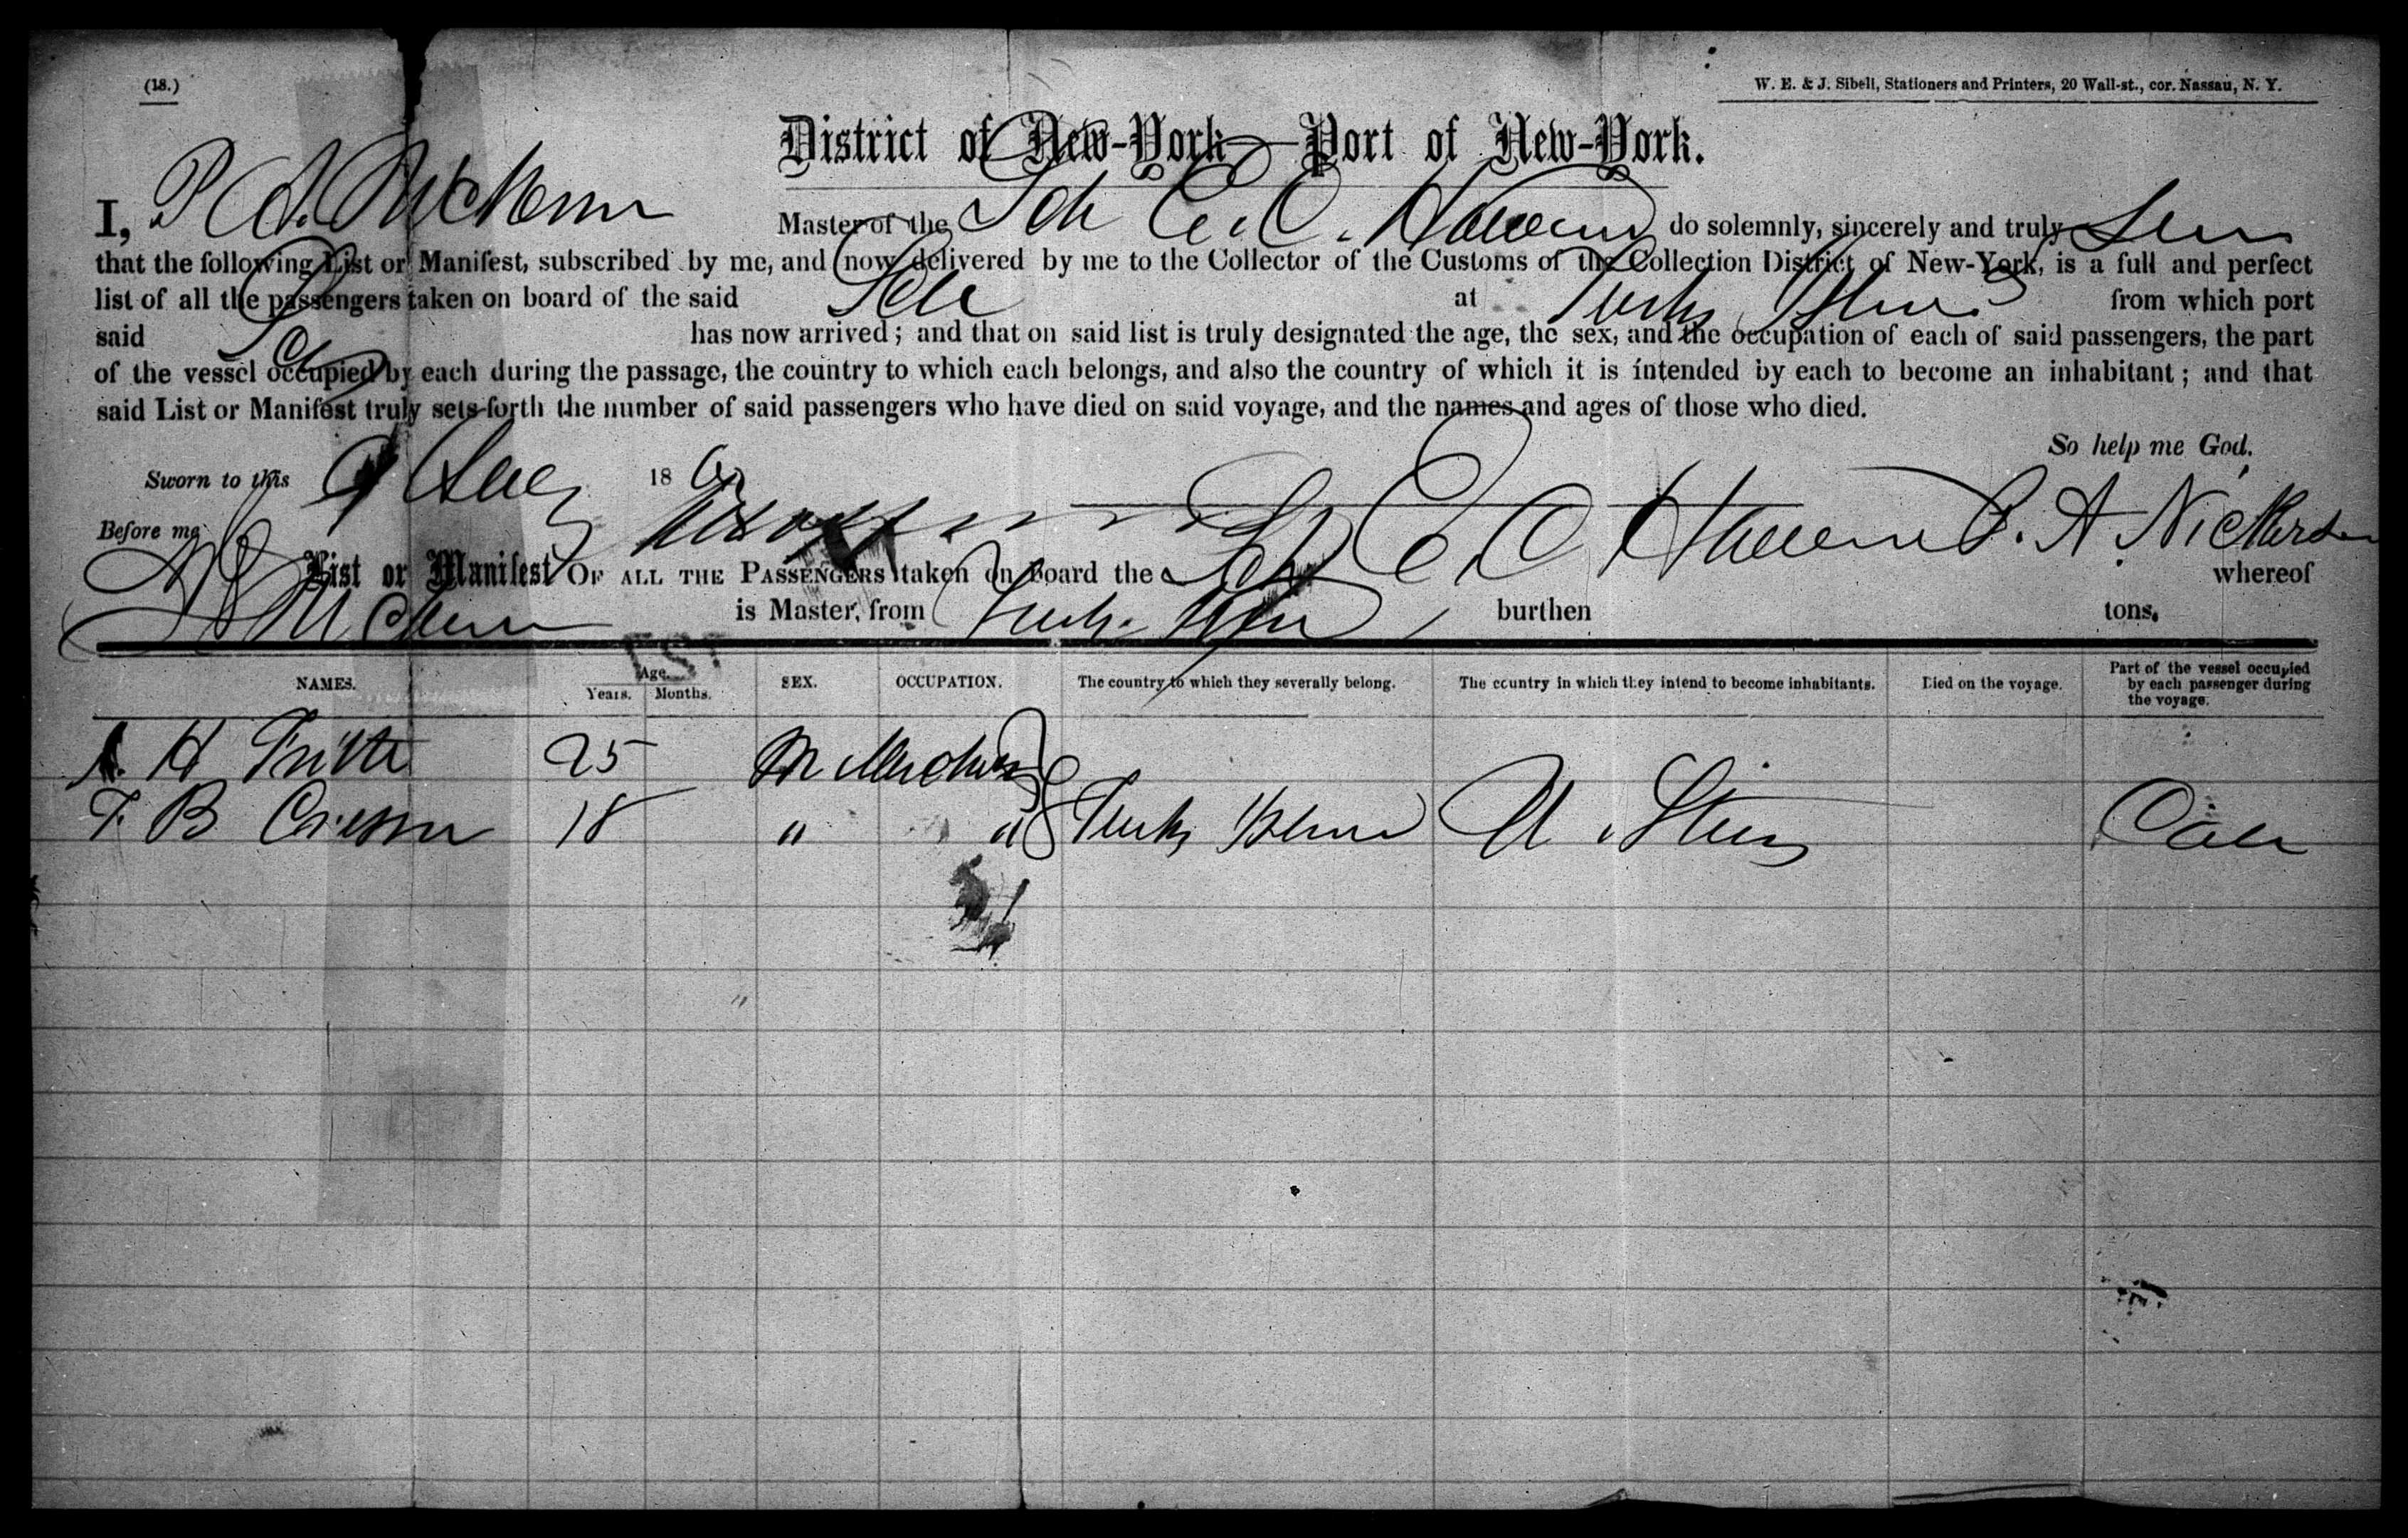 (18.)
W. E. & J. Sibell, Stationers and Printers, 20 Wall-st., cor. Nassau, N. Y.
District of New-York—Port of New-York.
I, P A. Nickerson Master of the Sch E. C. do solemnly, sincerely and truly
that the following List or Manifest, subscribed by me, and now delivered by me to the Collector of the Customs of the Collection District of New-York, is a full and perfect
list of all the passengers taken on board of the said Sch at Turks from which port
said Sch has now arrived; and that on said list is truly designated the age, the sex, and the occupation of each of said passengers, the part
of the vessel occupied by each during the passage, the country to which each belongs, and also the country of which it is intended by each to become an inhabitant; and that
said List or Manifest truly sets forth the number of said passengers who have died on said voyage, and the names and ages of those who died.
So help me God.
Sworn to this 9 186
P. A Nickerson
Before me
List or Manifest OF ALL THE PASSENGERS taken on board the Sch E. C whereof
is Master, from Turks burthen tons.
NAMES. Age. Years. Months. SEX. OCCUPATION. The country to which they severally belong. The country in which they intend to become inhabitants. Died on the voyage. Part of the vessel occupied by each passenger during the voyage.
H 25 M Merchant
T. B 18 " " Turks Island U. States